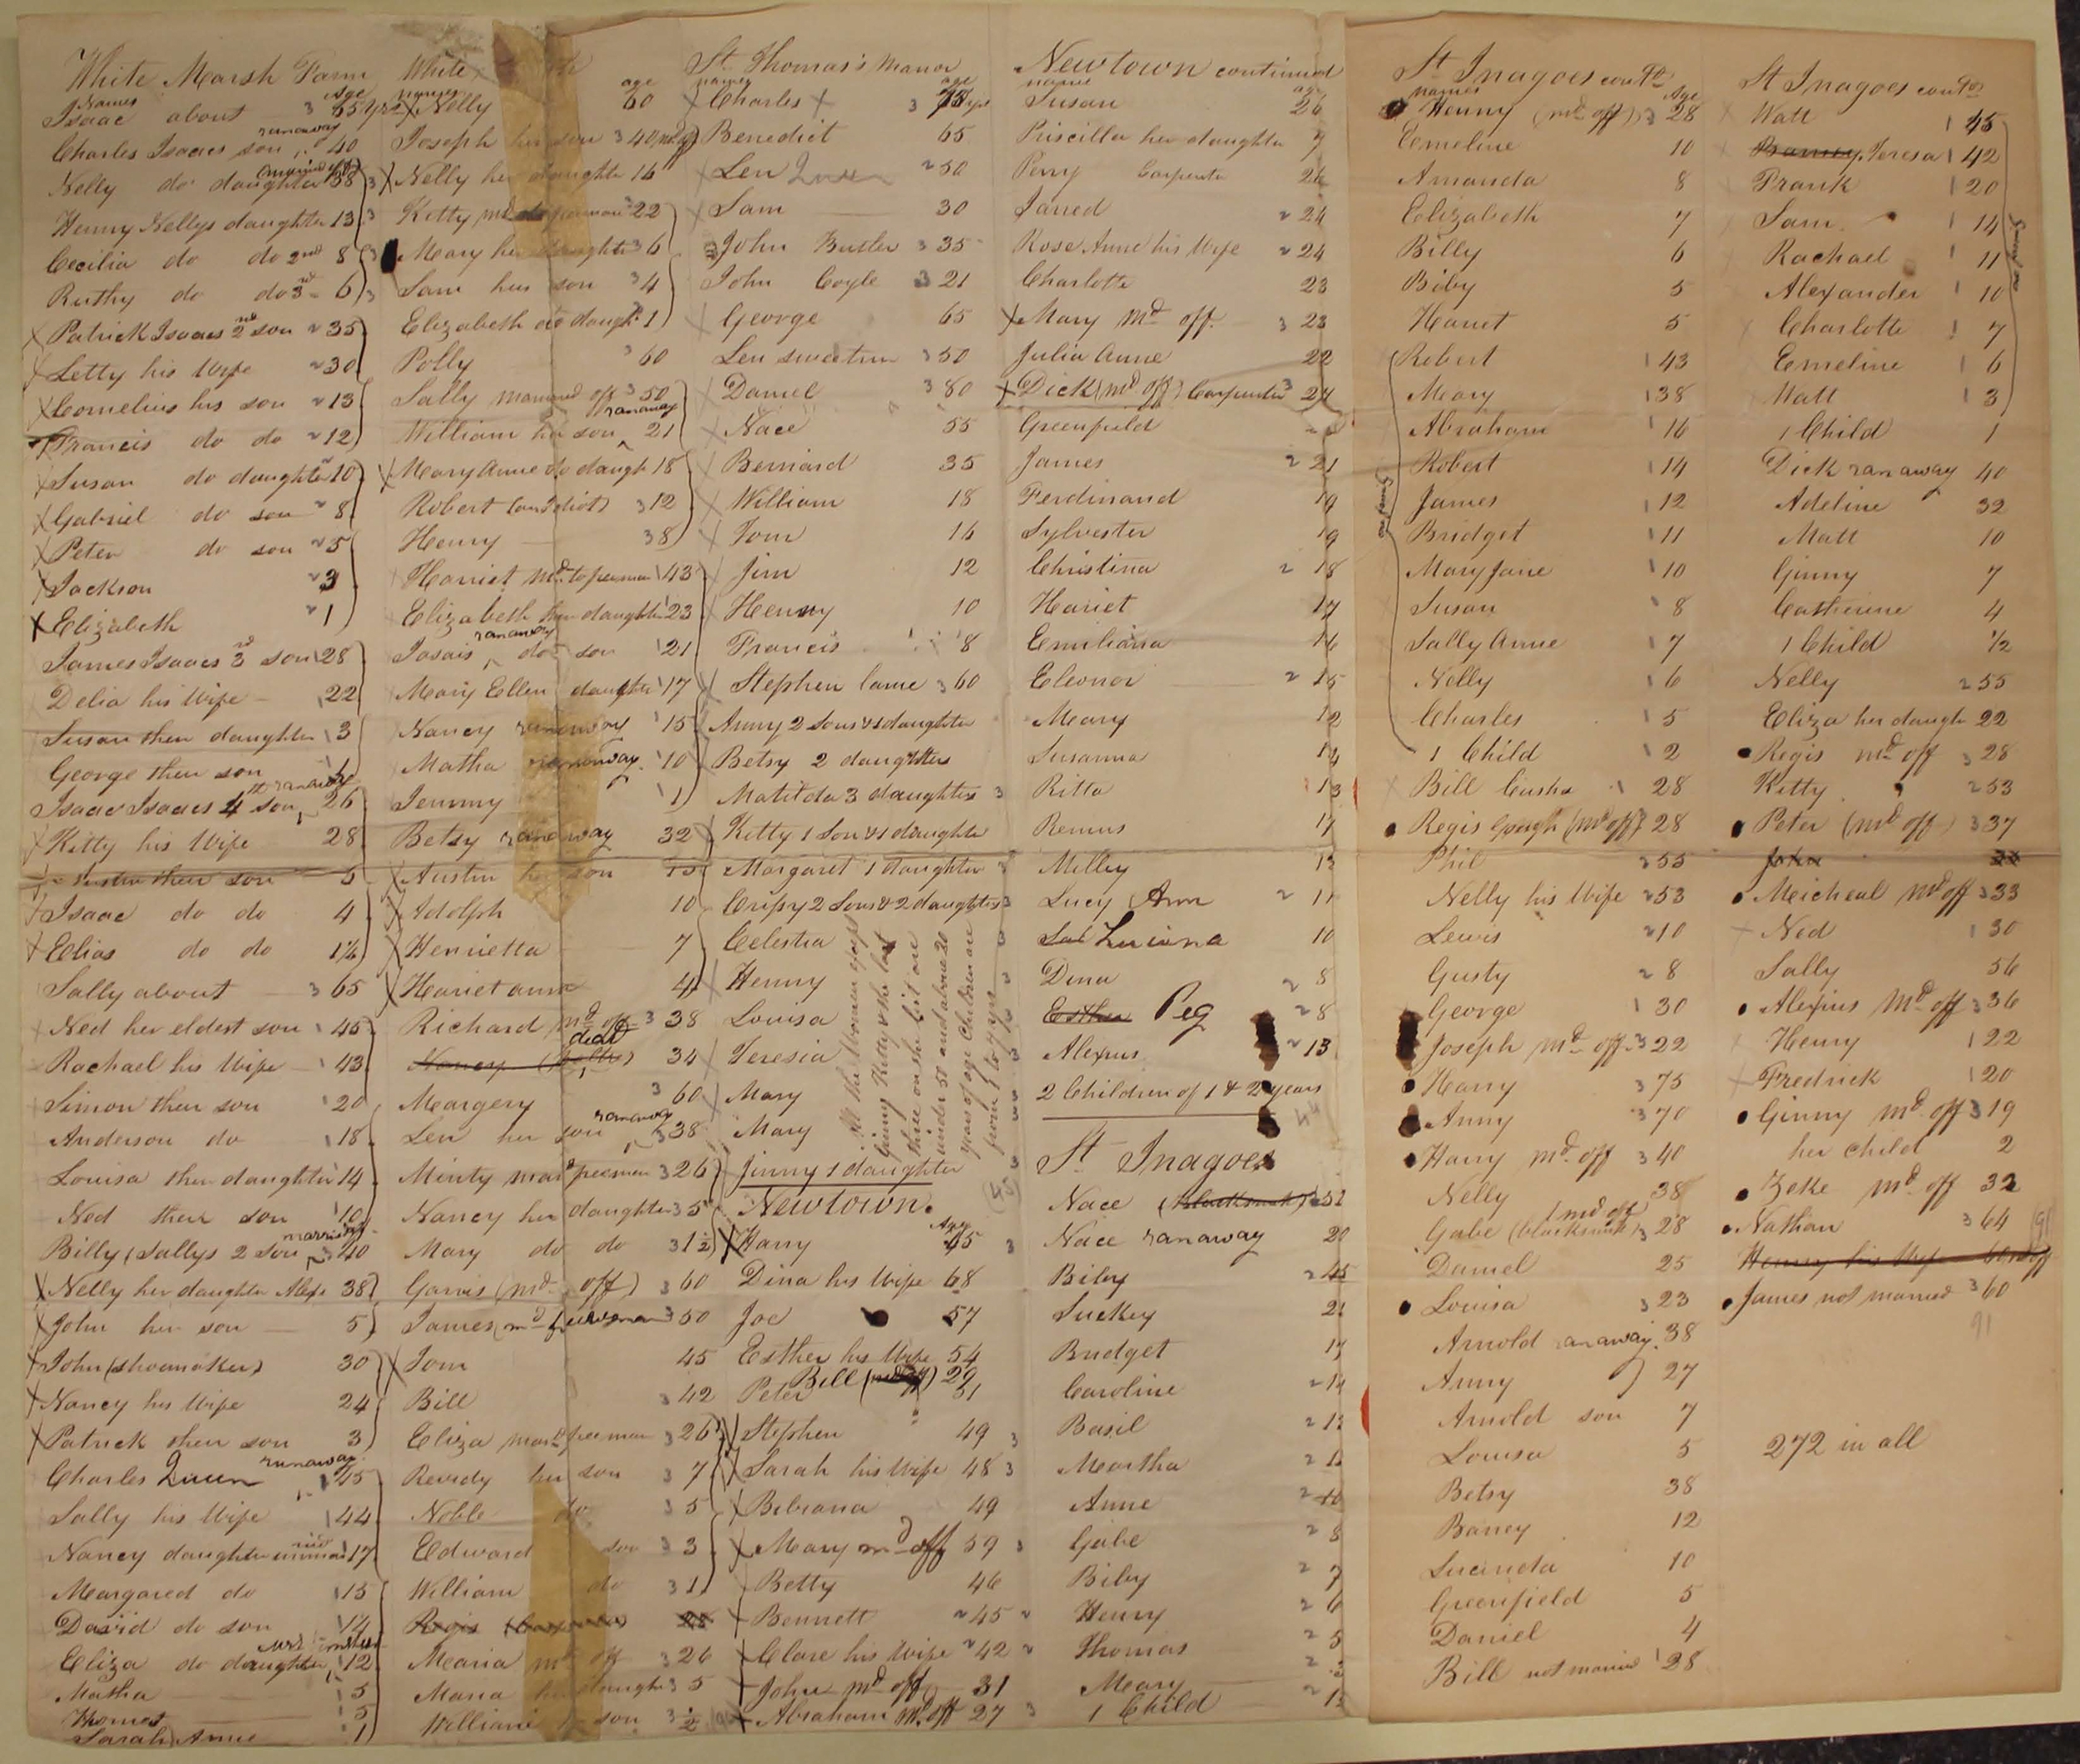 White Marsh Farm
Names Age
Isaac about 65 yrs
Charles Isaacs son ranaway 40
Nelly do daughter married off 38
Henny Nellys daughter 13
Cecilia do do 2nd 8
Ruthy do do 3rd 6
Patrick Isaacs 2nd son 35
Letty his Wife 30
Cornelius his son 13
Francis do do 12
Susan do daughter 10
Gabriel do son 8
Peter do son 5
Jackson 3
Elizabeth 1
James Isaacs 3rd son 28
Delia his Wife 22
Susan their daughter 3
George their son 1
Isaac Isaacs 4th son ranaway 26
Kitty his Wife 28
Austin their son 5
Isaac do do 4
Elias do do 1½
Sally about 65
Ned her eldest son 45
Rachael his Wife 43
Simon their son 20
Anderson do 18
Louisa their daughter 14
Ned their son 10
Billy (Sallys 2 son married 40
Nelly her daughter 38
John her son 5
John (shoemaker) 30
Nancy his Wife 24
Patrick their son 3
Charles Queen runaway 45
Sally his Wife 44
Nancy daughter 17
Margared do 15
David do son 14
Eliza do daughter 12
Matha 5
Thomas 3
Sarah Anne 1
White
names age
Nelly 60
Joseph her son 40 md off
Nelly her daughter 16
Kitty md to freeman 22
Mary her daughter 6
Sam her son 4
Elizabeth do daugh 1
Polly 60
Sally married off 50
William her son ranaway 21
Mary Anne do daugh 18
Robert (an Idiot) 12
Henry 8
Harriet md to freeman 43
Elizabeth her daughter 23
Isais ranaway do son 21
Mary Ellen daughter 17
Nancy runaway 15
Matha runaway 10
Jemmy 1
Betsy ranaway 32
Austin her son 15
Adolph 10
Henrietta 7
Hariet ann 4
Richard md off 38
Nancy died 34
Margery 60
Len her son ranaway 38
Minty mard freeman 26
Nancy her daughter 5
Mary do do 1½
Garvis (md off) 60
James (md freewoman 50
Tom 45
Bill 42
Eliza mard freeman 26
Reverdy her son 7
Noble do 5
Edward son 3
William do 1
Regis 28
Maria md off 26
Maria her daughter 5
William son ½
St Thomas's Manor
names age
Charles 75 yrs
Benedict 65
Len Queen 50
Sam 30
John Butler 35
John Coyle 21
George 65
Len sweeton 50
Daniel 80
Nace 55
Bernard 35
William 18
Tom 16
Jim 12
Henry 10
Francis 8
Stephen lame 60
Anny 2 sons & 1 daughter
Betsy 2 daughters
Matilda 3 daughters
Kitty 1 son & 1 daughter
Margaret 1 daughter
Crispy 2 sons & 2 daughters
Celestia
Henny
Louisa
Teresia
Mary
Mary
Jinny 1 daughter
All the Women except
Ginny Kitty & the last
three on the list are
under 50 and above 20
years of age Children are
from 1 to 7 yrs
Newtown.
Age
Harry 65
Dina his Wife 68
Joe 57
Esther his Wife 54
Bill (md off) 29
Peter 31
Stephen 49
Sarah his Wife 48
Bibiana 49
Mary md off 59
Betty 46
Bennett 45
Clare his Wife 42
John md off 31
Abraham md off 27
Newtown continued
name age
Susan 26
Priscilla her daughter 7
Perry Carpenter 26
Jarred 24
Rose Anne his Wife 24
Charlotte 23
Mary md off. 23
Julia Anne 22
Dick (md off) Carpenter 24
Greenfield
James 21
Ferdinand 19
Sylvester 19
Christina 18
Hariet 17
Emiliana 16
Eleonor 15
Mary 12
Susanna 14
Ritta 13
Remus 17
Milley 13
Lucy Ann 11
Sal Lucina 10
Dina 8
Esther Peg 8
Alexius 13
2 Children of 1 & 2 years
St Inagoes
Nace (blacksmith) 52
Nace ranaway 20
Biby 45
Suckey 21
Bridget 17
Caroline 14
Basil 13
Martha
Anne 10
Gabe 8
Biby 7
Henry 6
Thomas 5
Mary
1 Child
St Inagoes contd
names Age
Henny (md off) 28
Emeline 10
Amanda 8
Elizabeth 7
Billy 6
Biby 5
Hariet 5
one family
Robert 43
Mary 38
Abraham 16
Robert 14
James 12
Bridget 11
Mary Jane 10
Susan 8
Sally Anne 7
Nelly 6
Charles 5
1 Child 2
Bill Cush 28
Regis Gough (md off) 28
Phil 55
Nelly his Wife 53
Lewis 10
Gusty 8
George 30
Joseph md off 22
Harry 75
Anny 70
Harry md off 40
Nelly 38
Gabe (blacksmith) md off 28
Daniel 25
Louisa 23
Arnold ranaway. 38
Anny 27
Arnold son 7
Louisa 5
Betsy 38
Barney 12
Lucinda 10
Greenfield 5
Daniel 4
Bill not married 28
St Inagoes contd
Watt 45
Barney Teresa 42
Frank 20
Sam 14
Rachael 11
Alexander 10
Charlotte 7
Emeline 6
Watt 3
1 Child 1
Dick ranaway 40
Adeline 32
Matt 10
Ginny 7
Catherine 4
1 Child ½
Nelly 55
Eliza her daugh 22
Regis md off 28
Kitty 53
Peter (md off) 37
John
Meicheal md off 33
Ned 30
Sally 56
Alexius md off 36
Henry 22
Fredrick 20
Ginny md off 19
her child 2
Zeke md off 32
Nathan 64
Henny his Wife 60
James not married 60
91
272 in all